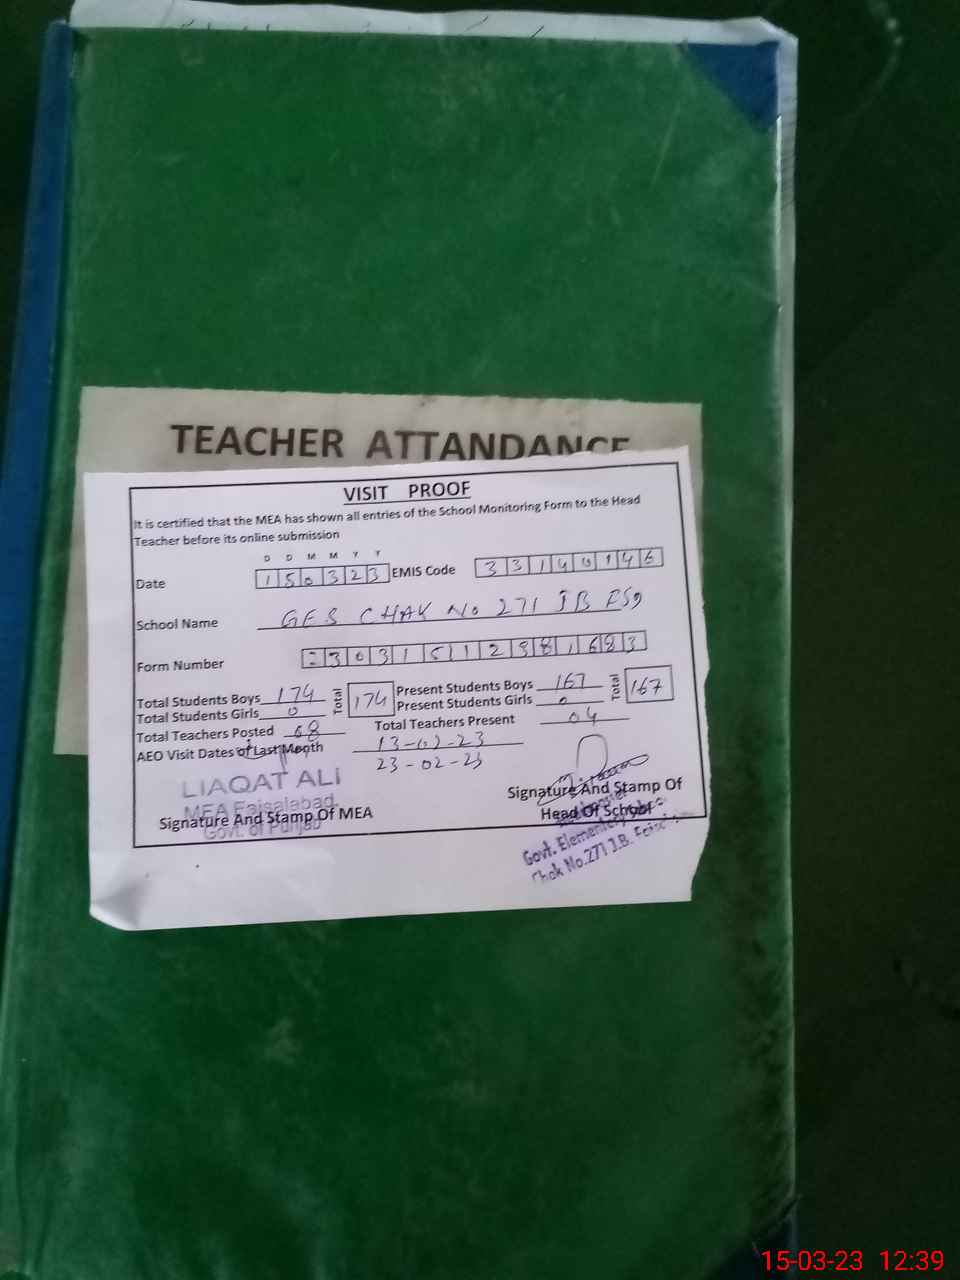 TEACHER ATTANDANCE
VISIT PROOF
It is certified that the MEA has shown all entries of the School Monitoring Form to the Head
Teacher before its online submission
D D M M Y Y
Date 150323 EMIS Code 33140146
School Name GES CHAK No 271 JB FSD
Form Number
Total Students Boys 174 Total 174 Present Students Boys 167 Total 167
Total Students Girls 0 Present Students Girls 0
Total Teachers Posted 08 Total Teachers Present 04
AEO Visit Dates of Last Month 13-02-23
23-02-23
LIAQAT ALI
MEA Faisalabad
Govt. of Punjab
Signature And Stamp Of MEA
Signature And Stamp Of
Head Of School
Govt. Elementary
Chak No.271 J.B.
15-03-23 12:39